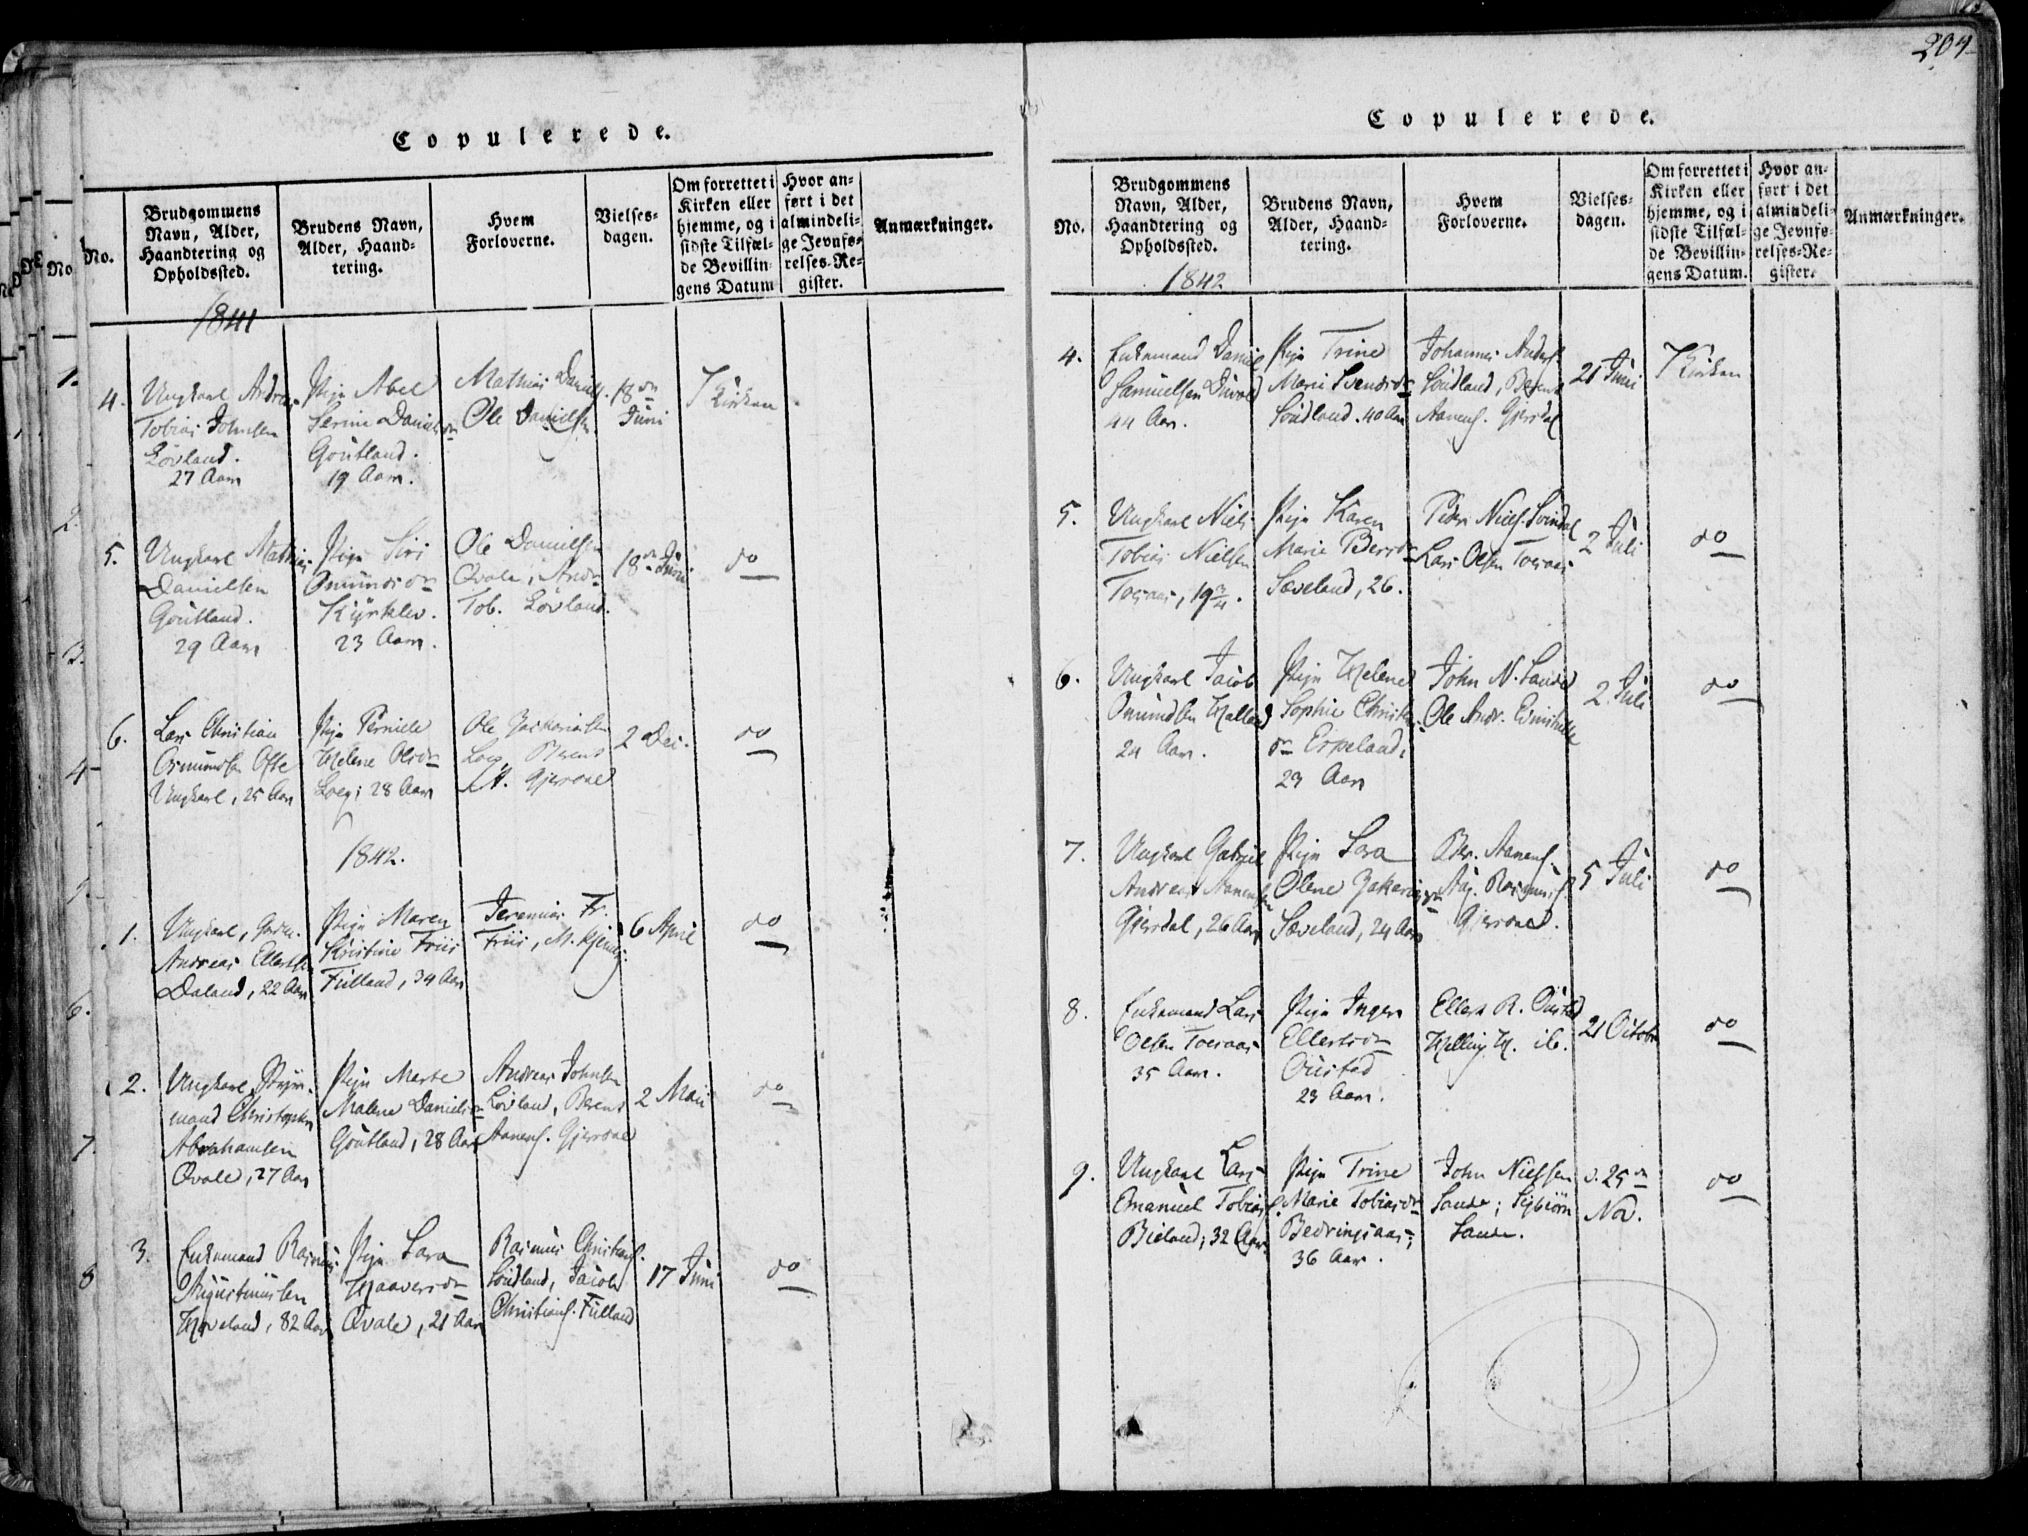 204
Copulerede.
No.
Brudgommens
Navn, Alder,
Haandtering og
Opholdssted.
Brudens Navn,
Alder, Haand-
tering.
Hvem
Forloverne.
Vielses-
dagen.
Om forrettet i
Kirken eller
hjemme, og i
sidste Tilfæl-
de Bevillin-
gens Datum
Hvor an-
ført i det
almindeli-
ge Jevnfø-
relses-Re-
gister.
Anmærkninger.
1841
4.
Ungkarl Andreas
Tobias Johnsen
Lövland.
27 Aar
Pige Abel
Serine Danielsdr
Goutland.
19 Aar.
Mathias Daniels.
Ole Danielsen
18de
Juni
I Kirken
5.
Ungkarl Mathias
Danielsen
Goutland.
29 Aar
Pige Siri
Omundsdr
Kyrklev.
23 Aar.
Ole Danielsen
Qvale, Andr.
Tob. Lövland.
18de Juni
do
6.
Lars Christian
Osmundsen Ofte
Ungkarl, 25 Aar
Pige Pernille
Helene Olsdr
Loeg, 28 Aar
Ole Zachariasen
Loeg, Berent
A. Gjersdal
2 Dec.
do
1842.
1.
Ungkarl,
Andreas Ellertsen
Daland, 22 Aar
Pige Maren
Kristine Friis
Fuland, 34 Aar
Jeremias Fr.
Friis, M.
6 April
do
2.
Ungkarl, Styr-
mand Christopher
Abrahamsen
Qvale, 27 Aar
Pige Marte
Malene Danielsdr
Goutland, 28 Aar
Andreas Johnsen
Lövland, Berent
Aanens. Gjersdal
2 Mai
do
3.
Enkemand Rasmus
Augustinussen
Hoveland, 82 Aar
Pige Sara
Haaversdr
Qvale, 21 Aar
Rasmus Christians.
Soudland, Jacob
Christians. Fuland
17 Juni
do
Copulerede.
No.
Brudgommens
Navn, Alder,
Haandtering og
Opholdssted.
Brudens Navn,
Alder, Haand-
tering.
Hvem
Forloverne.
Vielses-
dagen.
Om forrettet i
Kirken eller
hjemme, og i
sidste Tilfæl-
de Bevillin-
gens Datum.
Hvor an-
ført i det
almindeli-
ge Jevnfø-
relses-Re-
gister.
Anmærkninger.
1842
4.
Enkemand Daniel
Samuelsen
44 Aar.
Pige Trine
Marie Svendsdr
Soudland. 40 Aar
Johannes Anders.
Soudland, Berent
Aanens. Gjersdal
21 Juni
I Kirken
5.
Ungkarl Niels
Tobias Nielsen
Toeraas, 19 3/4.
Pige Karen
Marie Berrsdr
Sæveland, 26.
Peder Niels. Svindal
Lars Olsen Toeraas
2 Juli
do
6.
Ungkarl Jacob
Omundsen Halland
24 Aar.
Pige Helene
Sophie Christens
dr Espeland,
23 Aar
John N. Sande
Ole Andr.
2 Juli
do
7.
Ungkarl Gabriel
Andreas Aanensen
Gjersdal, 26 Aar
Pige Sara
Olene Zakariasdr
Sæveland, 24 Aar
Ber. Aanens.
Aag. Rasmus.
Gjersdal.
5 Juli
do
8.
Enkemand Lars
Olsen Toeraas
35 Aar.
Pige Inger
Ellertsdr
Oustad
23 Aar.
Ellert R. Oustad
Helling H. ib.
21 October
do
9.
Ungkarl Lars
Emanuel Tobias.
Bieland; 32 Aar
Pige Trine
Marie Tobiasdr
Bedringsaas;
36 Aar.
John Nielsen
Sande; Sigbiörn
Sande.
d. 25de
Nov.
do